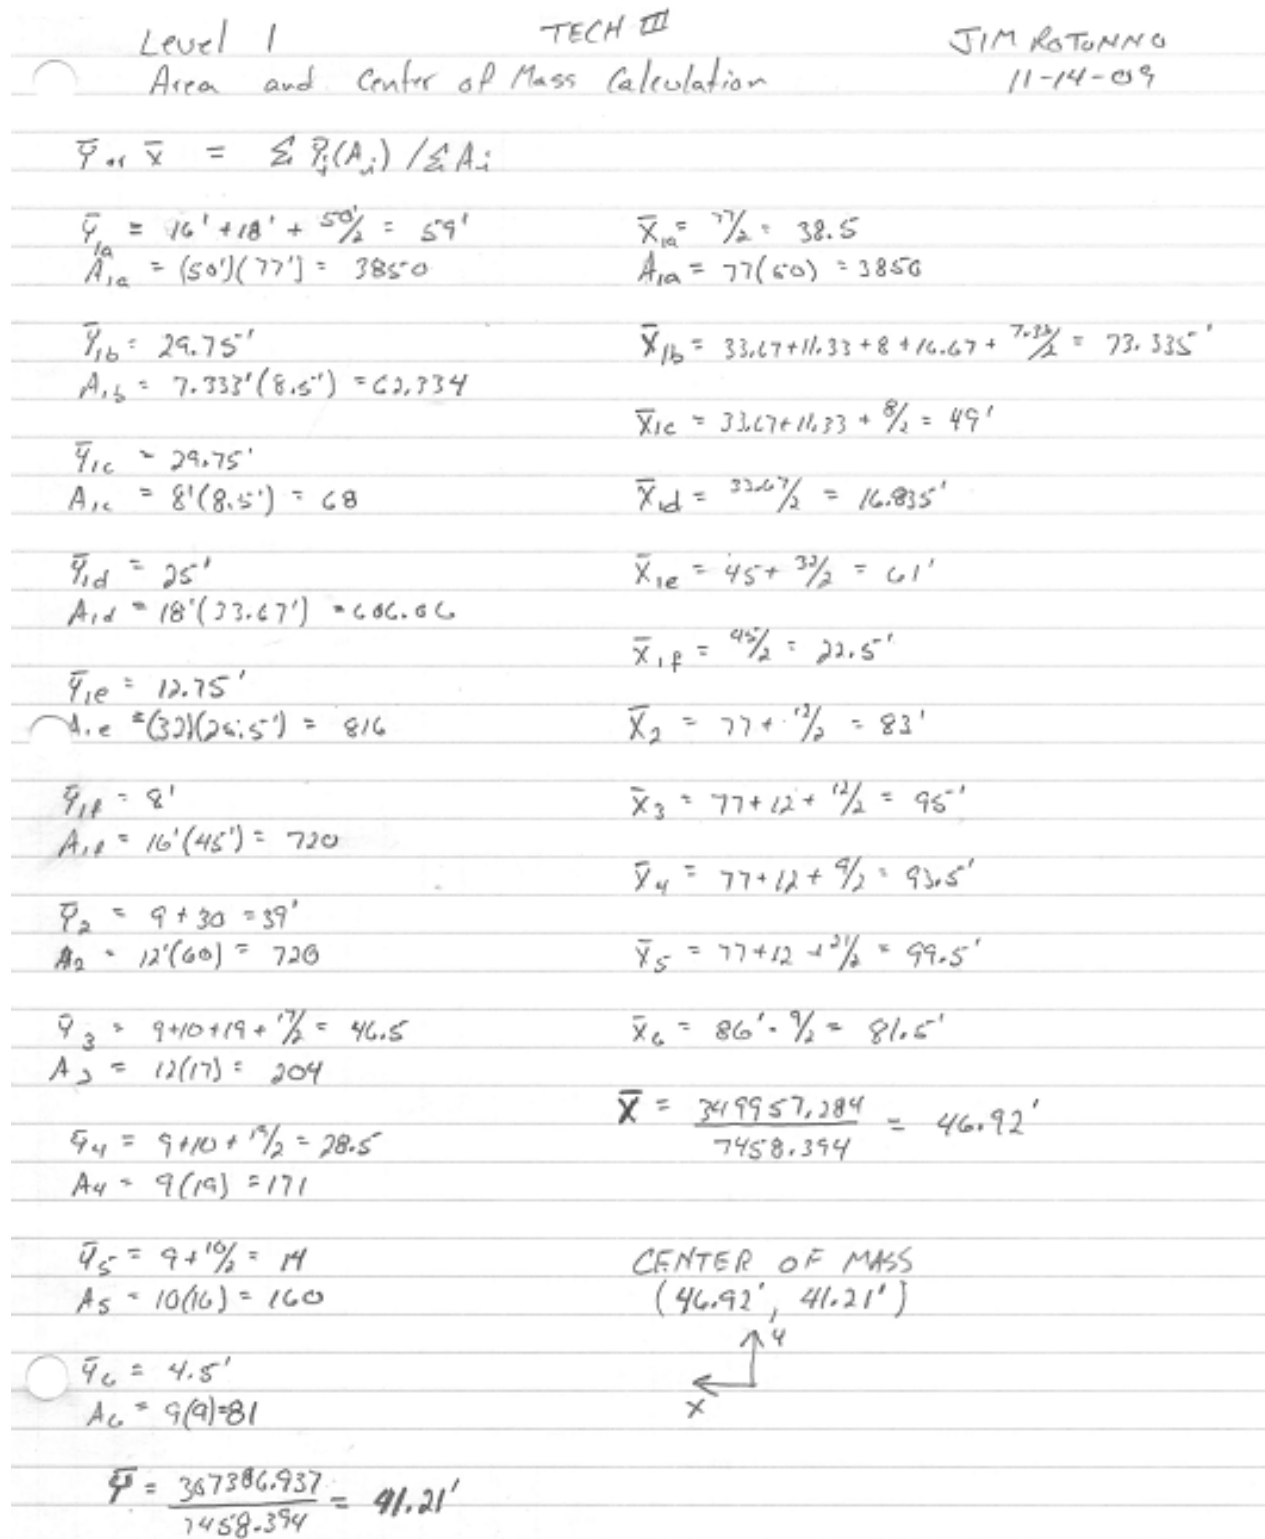 Level 1 TECH III JIM ROTUNNO
Area and Center of Mass Calculation 11-14-09
Ȳ or X̄ = Σ Ȳi(Ai) / Σ Ai
Ȳ1a = 16' + 18' + 50'/2 = 59'
A1a = (50')(77') = 3850
Ȳ1b = 29.75'
A1b = 7.333'(8.5') = 62.334
Ȳ1c = 29.75'
A1c = 8'(8.5') = 68
Ȳ1d = 25'
A1d = 18'(33.67') = 606.06
Ȳ1e = 12.75'
A1e = (32)(25.5') = 816
Ȳ1f = 8'
A1f = 16'(45') = 720
Ȳ2 = 9 + 30 = 39'
A2 = 12'(60) = 720
Ȳ3 = 9+10+19+17/2 = 46.5
A3 = 12(17) = 204
Ȳ4 = 9+10+19/2 = 28.5
A4 = 9(19) = 171
Ȳ5 = 9+10/2 = 14
A5 = 10(16) = 160
Ȳ6 = 4.5'
A6 = 9(9)=81
Ȳ = 307386.937/7458.394 = 41.21'
X̄1a = 77/2 = 38.5
A1a = 77(50) = 3850
X̄1b = 33.67+11.33+8+16.67+7.33/2 = 73.335'
X̄1c = 33.67+11.33+8/2 = 49'
X̄1d = 33.67/2 = 16.835'
X̄1e = 45+32/2 = 61'
X̄1f = 45/2 = 22.5'
X̄2 = 77+12/2 = 83'
X̄3 = 77+12+12/2 = 95'
X̄4 = 77+12+9/2 = 93.5'
X̄5 = 77+12+21/2 = 99.5'
X̄6 = 86'-9/2 = 81.5'
X̄ = 349957.284/7458.394 = 46.92'
CENTER OF MASS
(46.92', 41.21')
Y
X